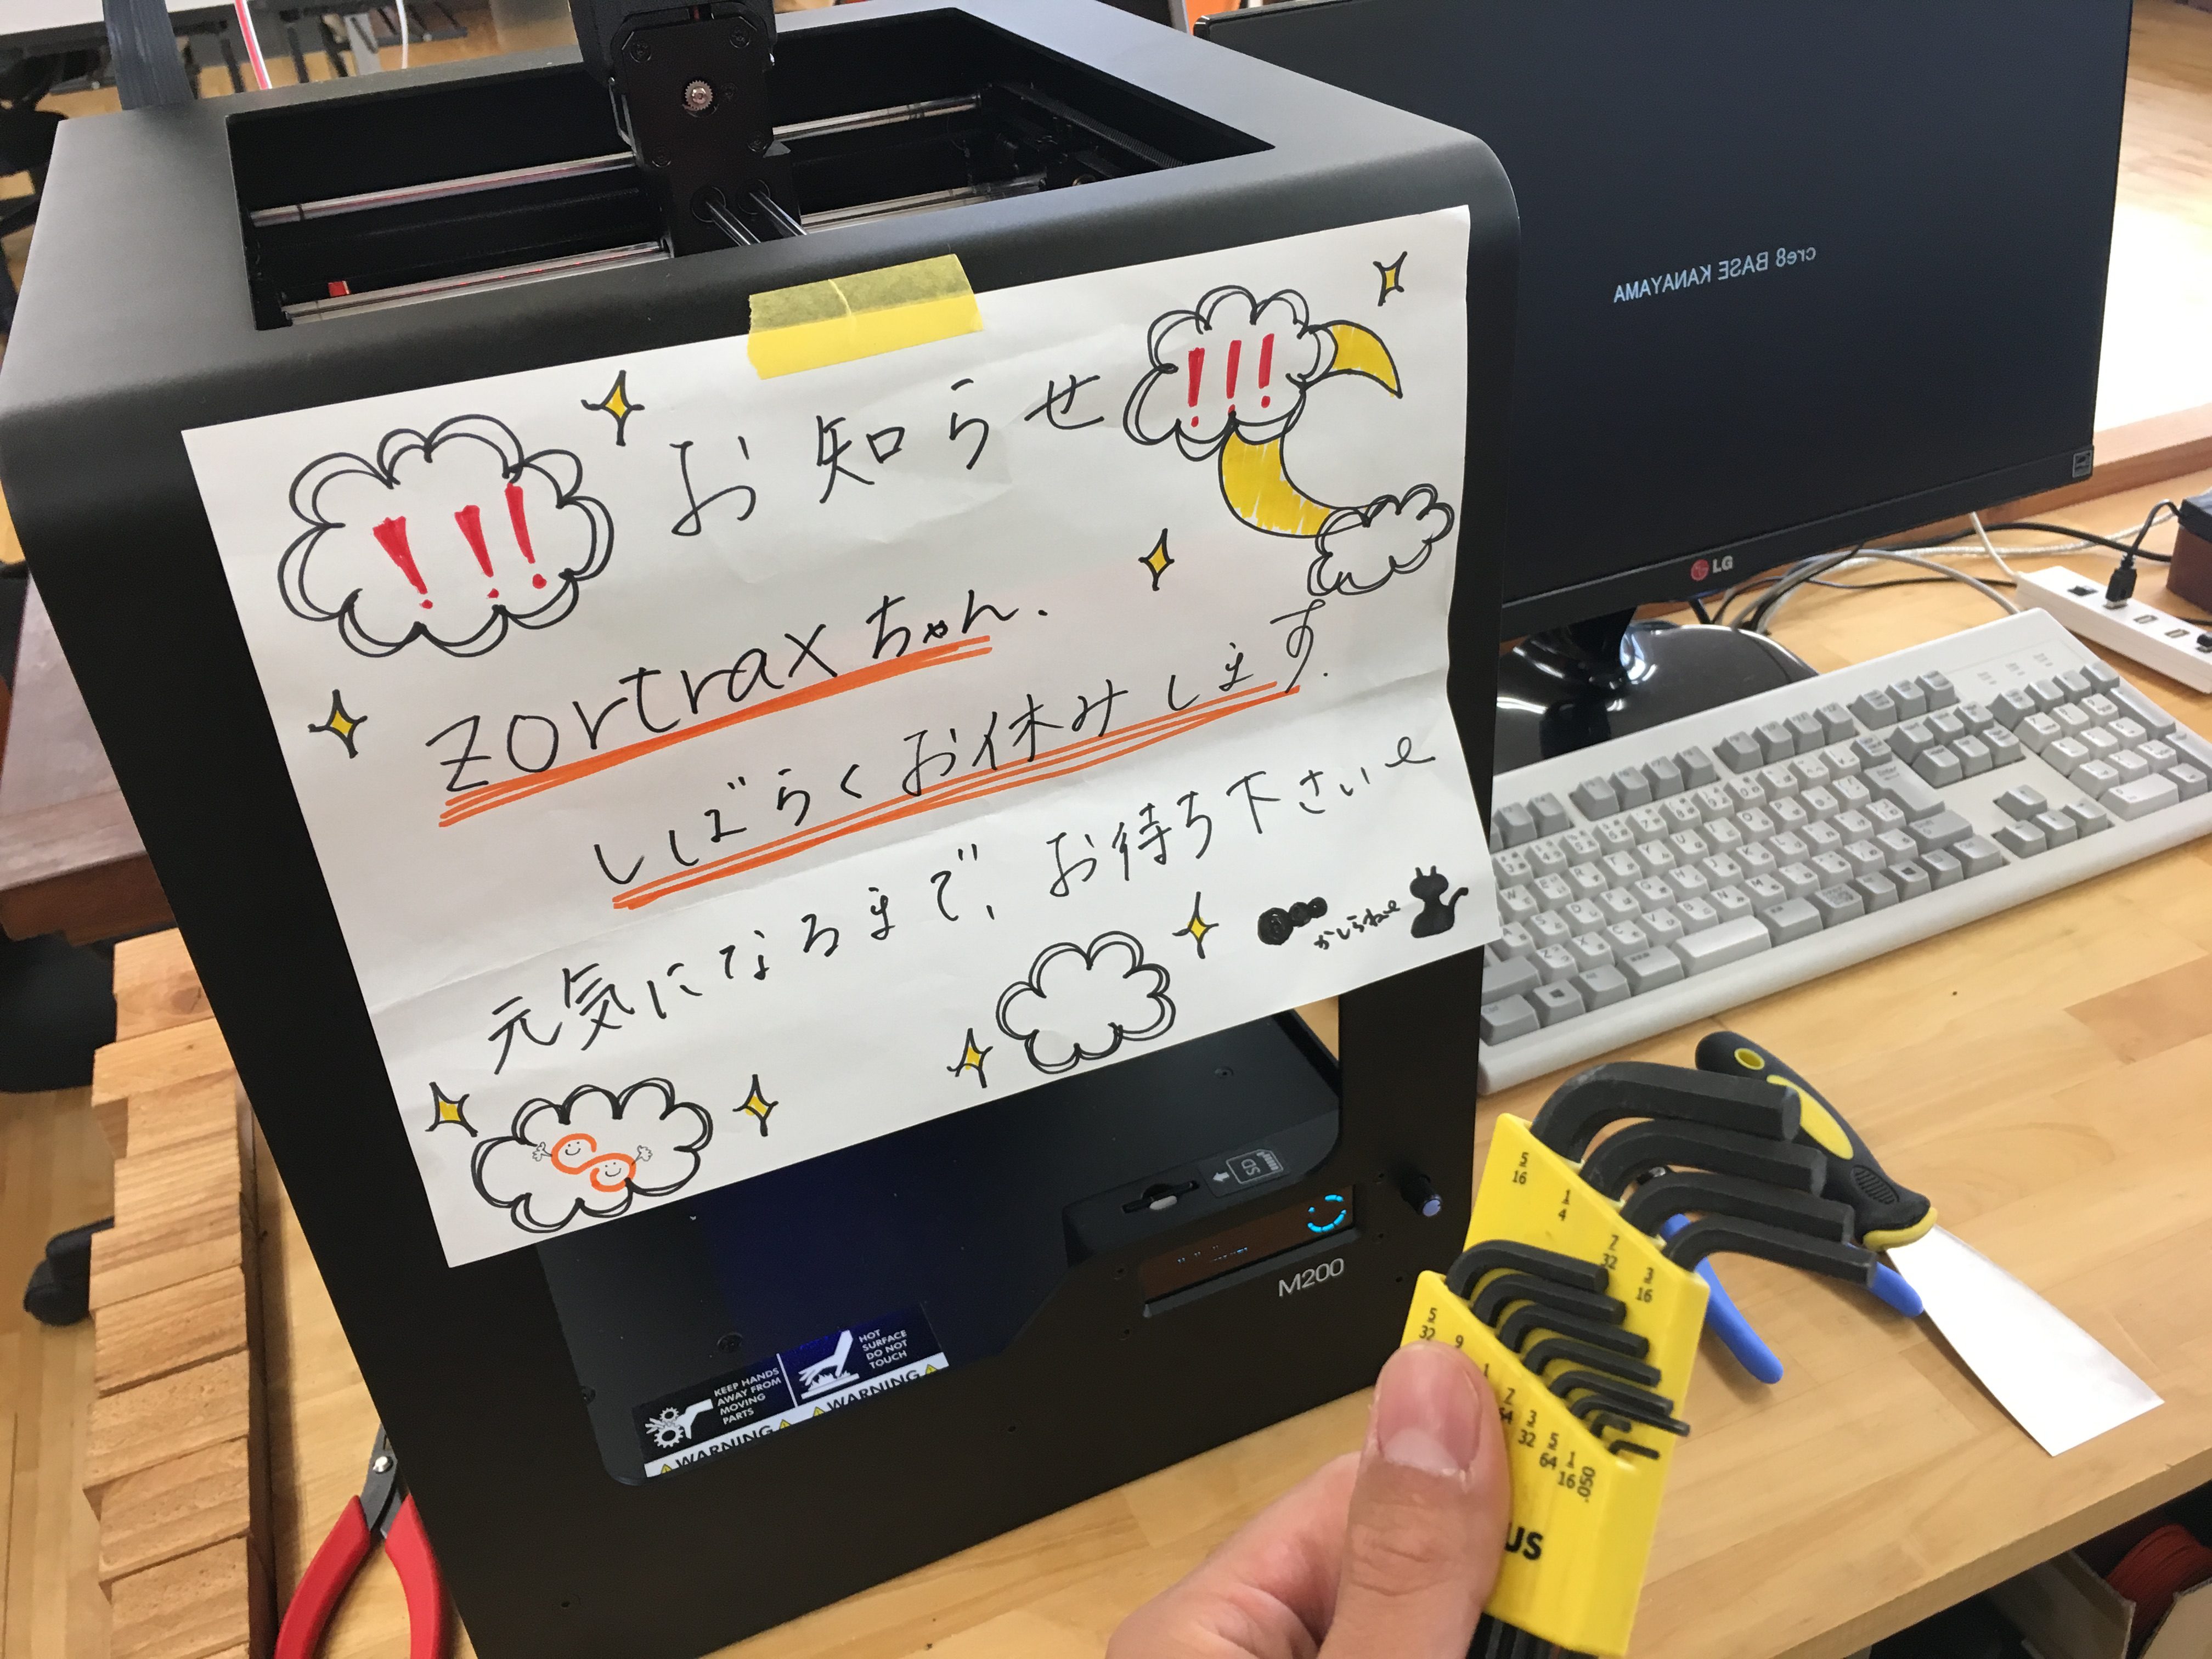 !!! お知らせ !!!
zortraxちゃん.
しばらくお休みします.
元気になるまで、お待ち下さい
cre8 BASE KANAYAMA
LG
SD
M200
KEEP HANDS
AWAY FROM
MOVING
PARTS
HOT
SURFACE
DO NOT
TOUCH
WARNING
WARNING
5
16
1
4
7
32
3
16
5
32
9
1
7
64
3
32
5
64
1
16
.050
US